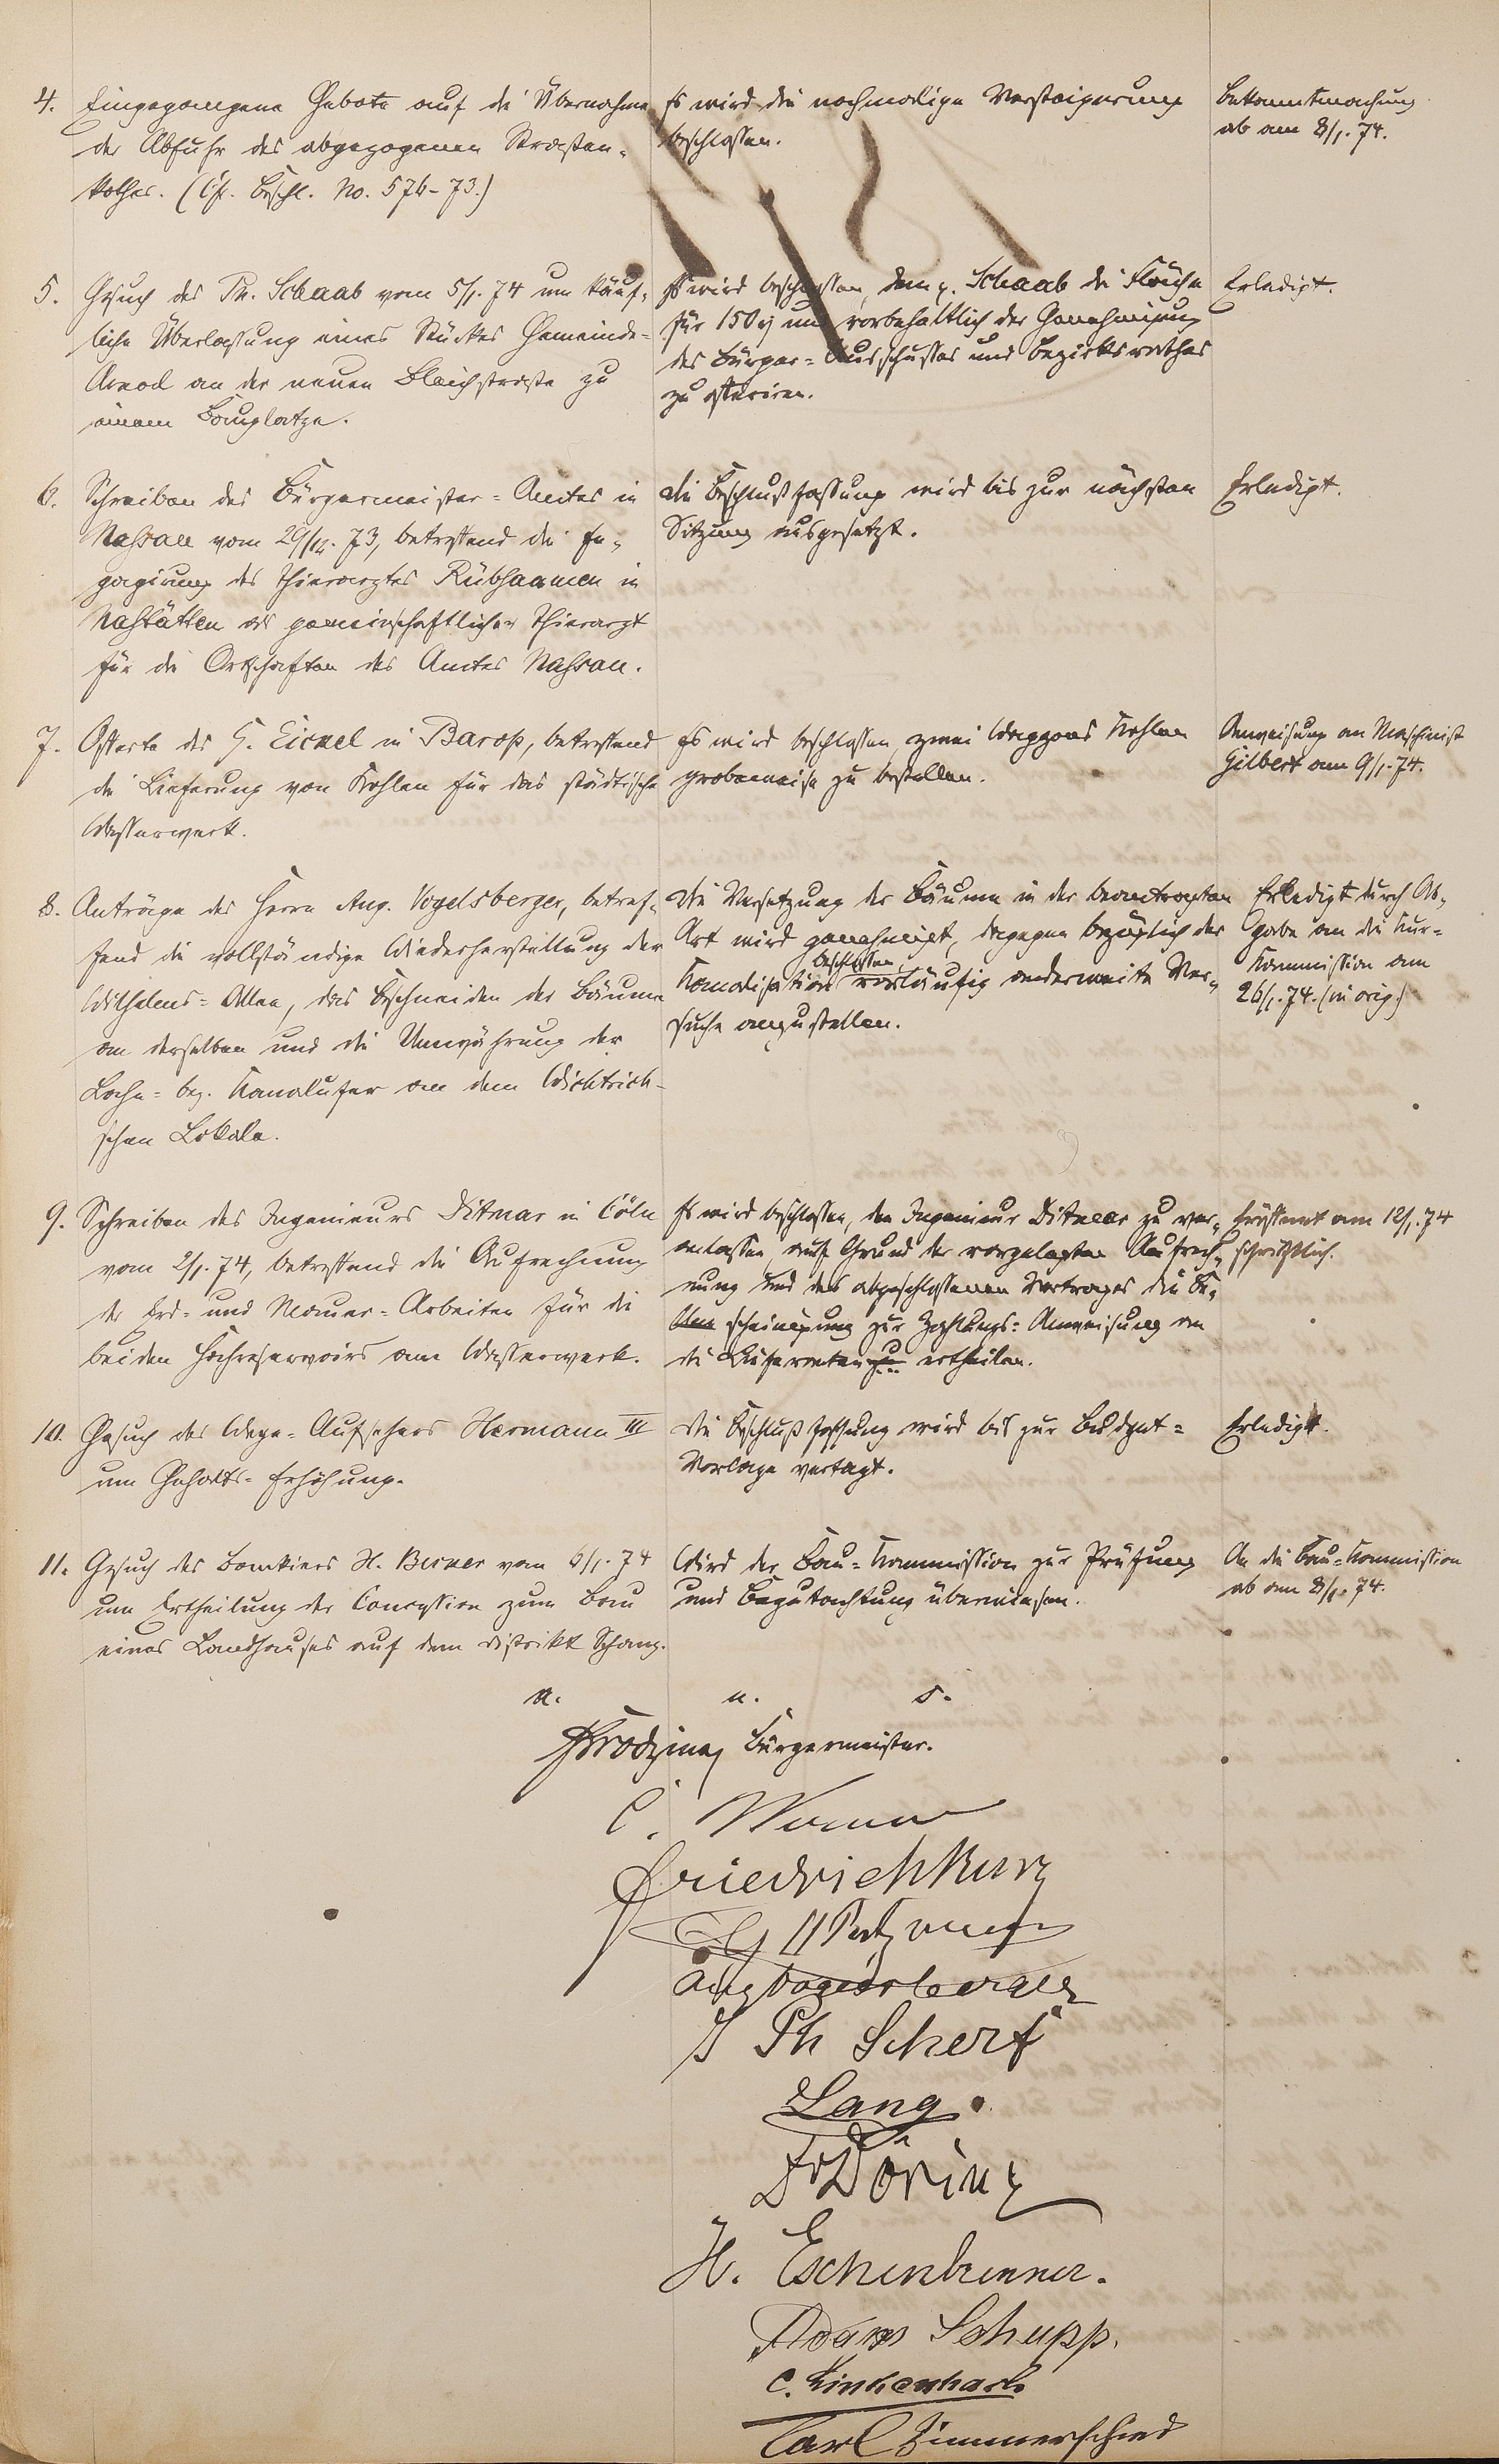 4. Eingegangene Gebote auf die Übernahme
der Abfuhr des abgezogenen Straßen-
kothes. (Cfr. Beschl. No. 576-73.)
Es wird die nochmalige Versteigerung
beschlossen.
Bekanntmachung
ab am 8/1. 74.
5. Gesuch des Ph. Schaab vom 5/1. 74 um käuf-
liche Überlassung eines Stückes Gemeinde-
Areal an der neuen Bleichstraße zu
einem Bauplatze.
Es wird beschlossen, dem p. Schaab die Fläche
für 150 und vorbehaltlich der Genehmigung
des Bürger-Ausschusses und Bezirksrathes
zu offeriren.
Erledigt.
6. Schreiben des Bürgermeister-Amtes in
Nassau vom 29/12. 73, betreffend die En-
gagirung des Thierarztes Rübsaamen in
Nastätten als gemeinschaftlicher Thierarzt
für die Ortschaften des Amtes Nassau.
Die Beschlußfassung wird bis zur nächsten
Sitzung ausgesetzt.
Erledigt.
7. Offerte des G. Eickel in Barop, betreffend
die Lieferung von Kohlen für das städtische
Wasserwerk.
Es wird beschlossen, zwei Waggons Kohlen
probeweise zu bestellen.
Anweisung an Maschinist
Gilbert am 9/1. 74.
8. Anträge des Herrn Aug. Vogelsberger, betref-
fend die vollständige Wiederherstellung der
Wilhelms-Allee, das Beschneiden der Bäume
an derselben und die Umwährung der
Lahn- bez. Kanalufer an dem Wichtrich-
schen Lokale.
Die Versetzung der Bäume in der beantragten
Art wird genehmigt, dagegen bezüglich der
beschlossen
Kanalisation vorläufig anderweite Ver-
suche anzustellen.
Erledigt durch Ab-
gabe an die Kur-
Kommission am
26/1. 74. (in orig.)
9. Schreiben des Ingenieurs Ditmar in Cöln
vom 2/1. 74, betreffend die Aufrechnung
der Erd- und Mauer-Arbeiten für die
beiden Hochreservoirs am Wasserwerk.
Es wird beschlossen, den Ingenieur Ditmar zu ver-
anlassen, auf Grund der vorgelegten Aufrech-
nung und des abgeschlossenen Vertrages die Be-
scheinigung zur Zahlungs-Anweisung an
die Lieferanten zu ertheilen.
Eröffnet am 12/1. 74
schriftlich.
10. Gesuch des Wege-Aufsehers Hermann III
um Gehalts-Erhöhung.
Die Beschlußfassung wird bis zur Budget-
Vorlage vertagt.
Erledigt.
11. Gesuch des Bankiers H. Berner vom 6/1. 74
um Ertheilung der Concession zum Bau
eines Landhauses auf dem Distrikt Schanz.
Wird der Bau-Kommission zur Prüfung
und Begutachtung überwiesen.
An die Bau-Kommission
ab am 8/1. 74.
a. u. s.
Bürgermeister.
C.
Friedrich Kurz
Aug Vogelsberger
J Ph Scherf
Lang.
Dr Döring
H. Eschenbrenner.
Adam Schupp.
C. Linkenbach
Carl Zimmerschied